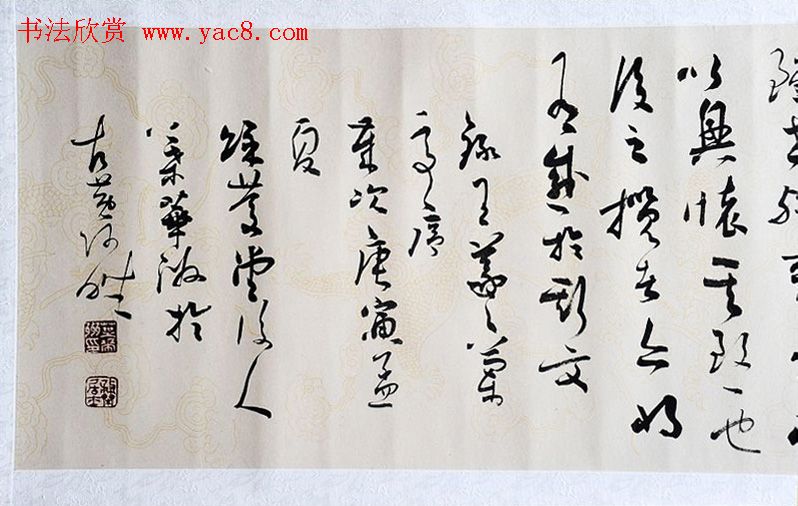 书法欣赏 www.yac8.com
雖世殊事
以興懷其致一也
後之攬者亦將
有感於斯文
錄王羲之蘭
亭序
歲次庚寅孟
夏
堂後人
華於
古黃河畔